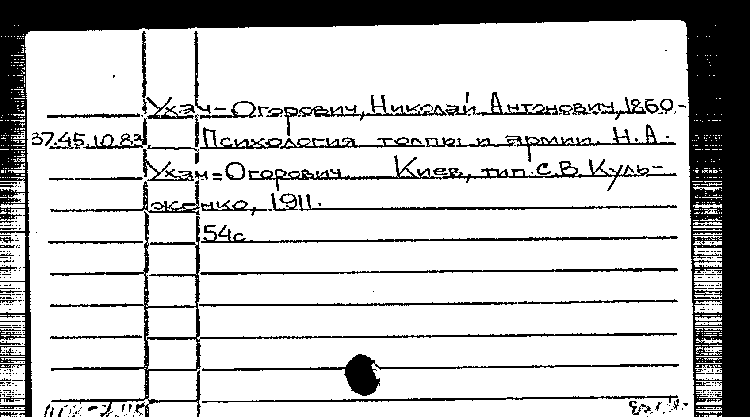 Ухач-Огорович, Николай Антонович, 1860-
37.45.10.83 Психология толпы и армии. Н.А.
Ухач=Огорович. Киев, тип. С.В. Куль-
женко, 1911.
54с.